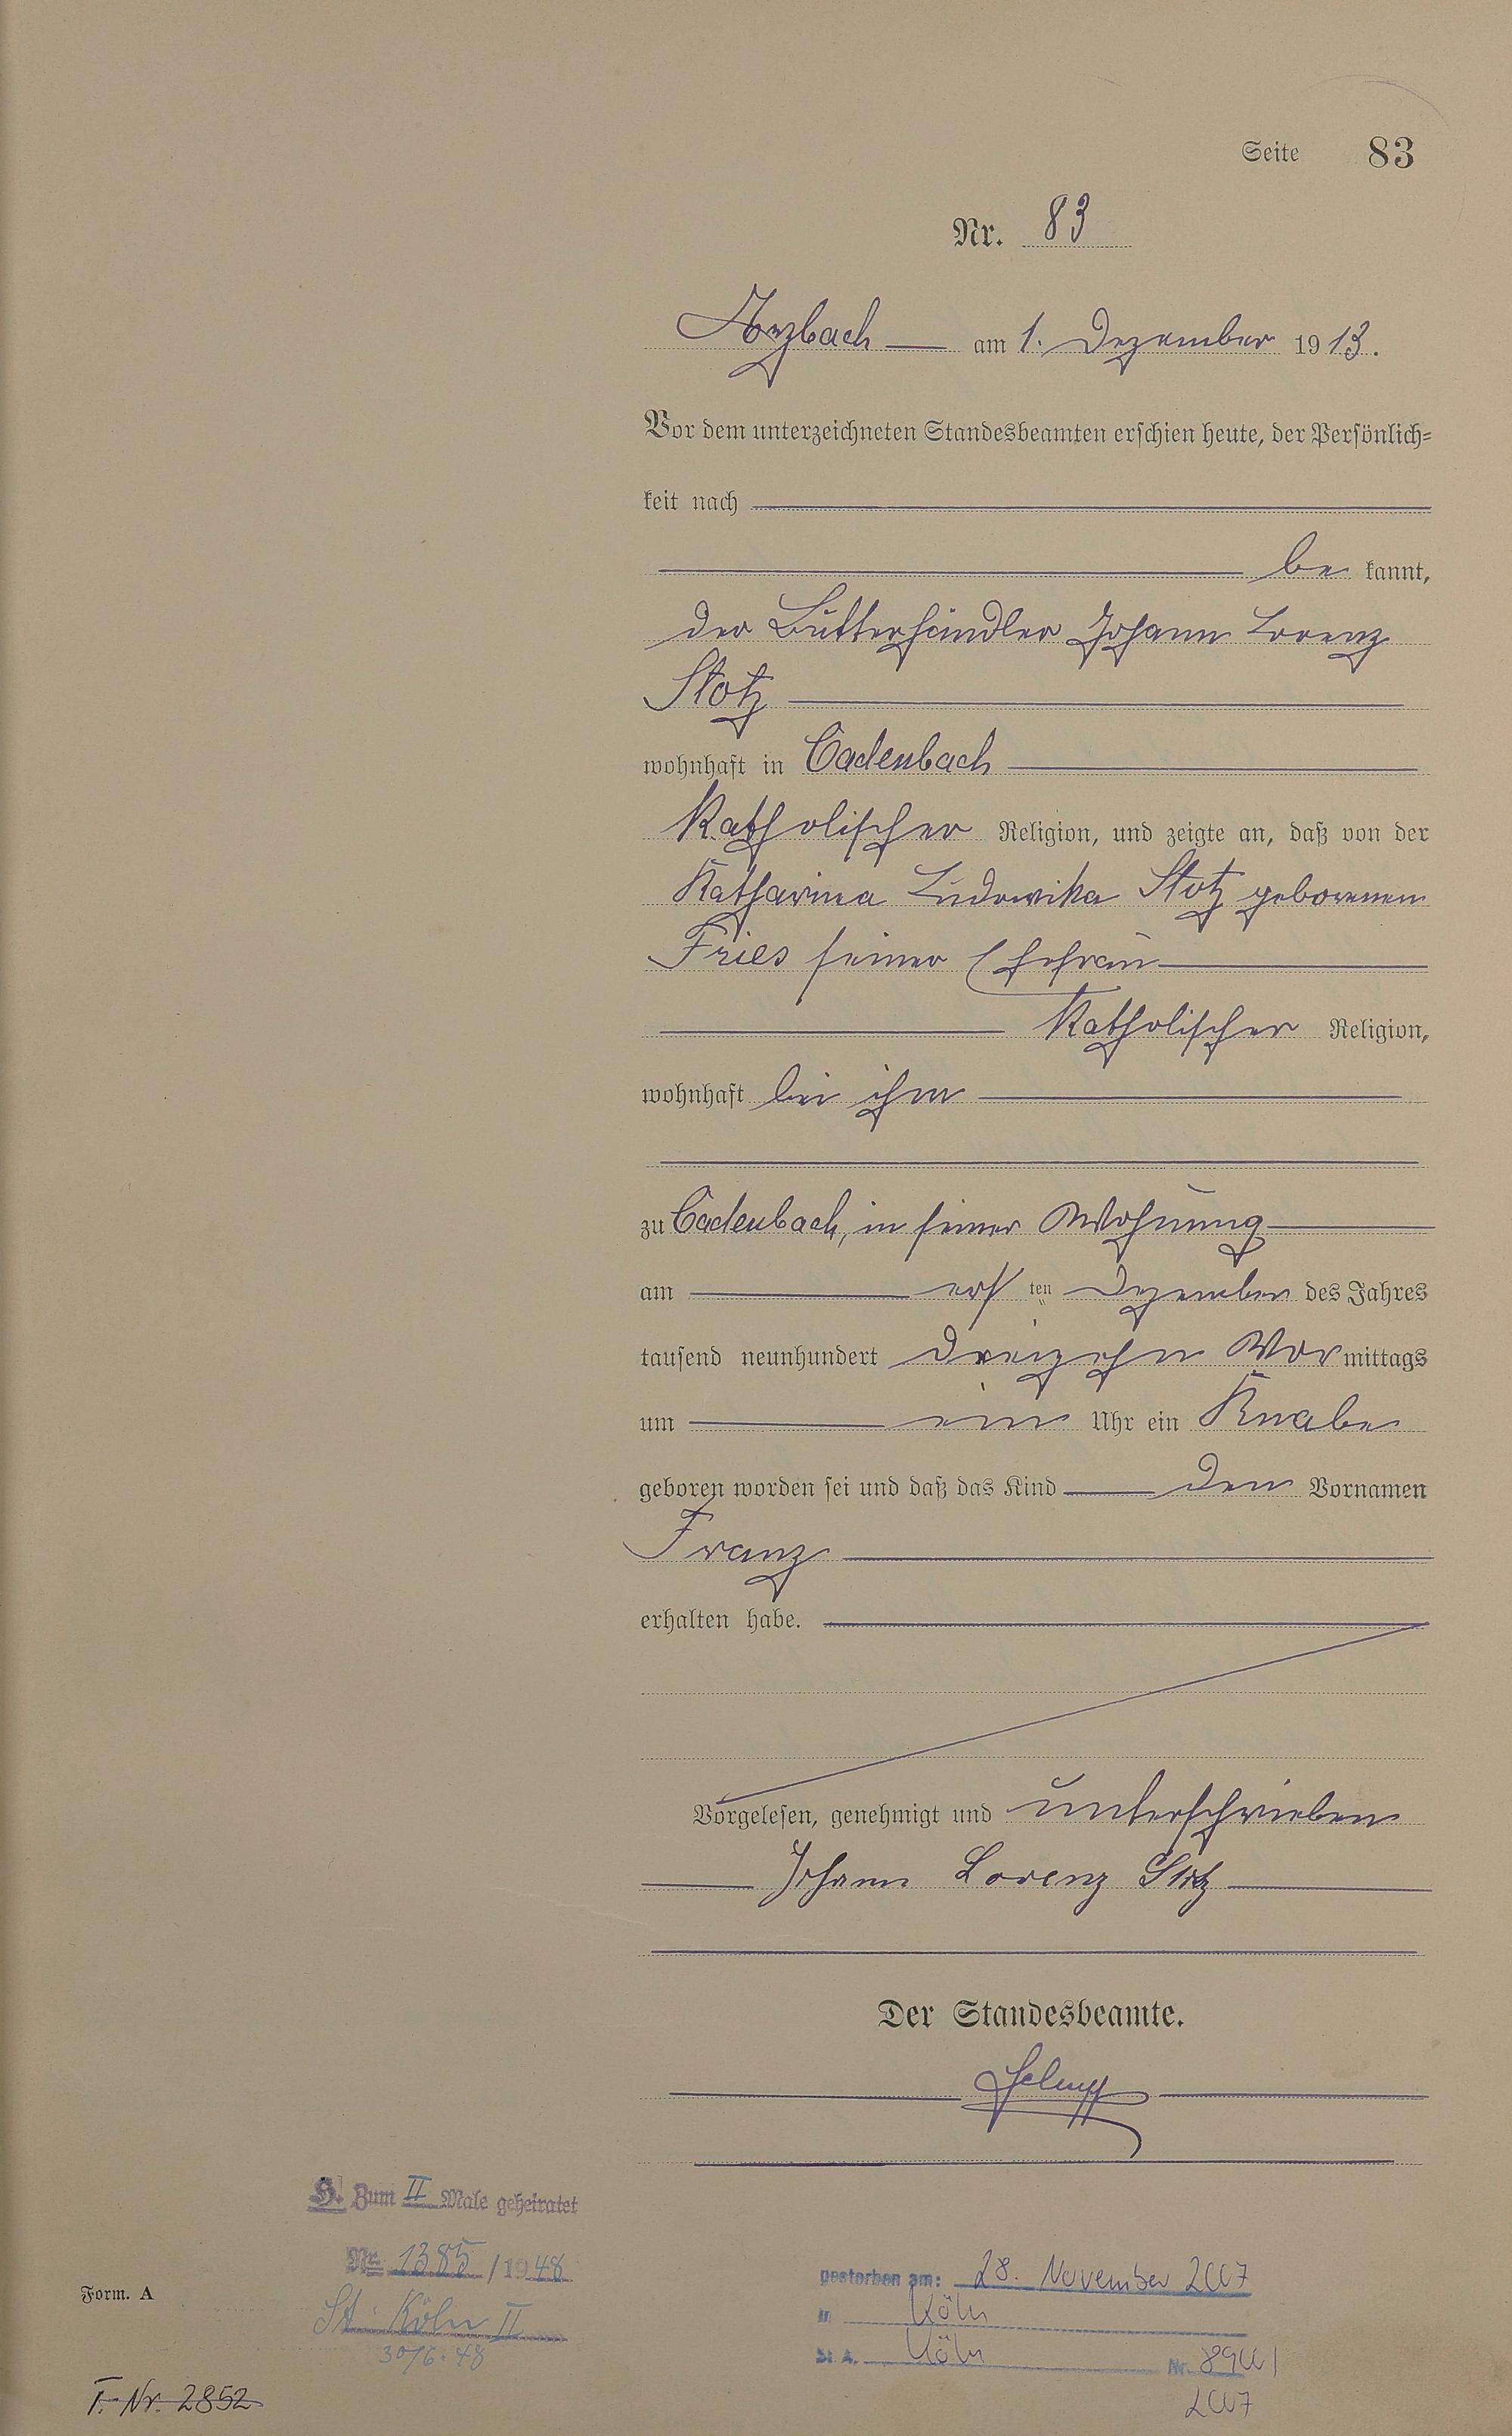 Seite 83
Nr. 83
Arzbach am 1. Dezember 1913.
Vor dem unterzeichneten Standesbeamten erschien heute, der Persönlich=
keit nach
be kannt,
der Butterhändler Johann Lorenz
Stotz
wohnhaft in Cadenbach
Katholischer Religion, und zeigte an, daß von der
Katharina Ludowika Stotz geborenen
Fries seiner Ehefrau
Katholischer Religion,
wohnhaft bei ihm
zu Cadenbach, in seiner Wohnung
am ersten Dezember des Jahres
tausend neunhundert dreizehn Vormittags
um ein Uhr ein Knabe
geboren worden sei und daß das Kind den Vornamen
Franz
erhalten habe.
Vorgelesen, genehmigt und unterschrieben
Johann Lorenz Stotz
Der Standesbeamte.
H. Zum II Male geheiratet
Nr. 1385/1948
St. Köln II
30/6.48
Form. A
T. Nr. 2852
gestorben am: 28. November 2007
in Köln
St. A. Köln Nr.
2007